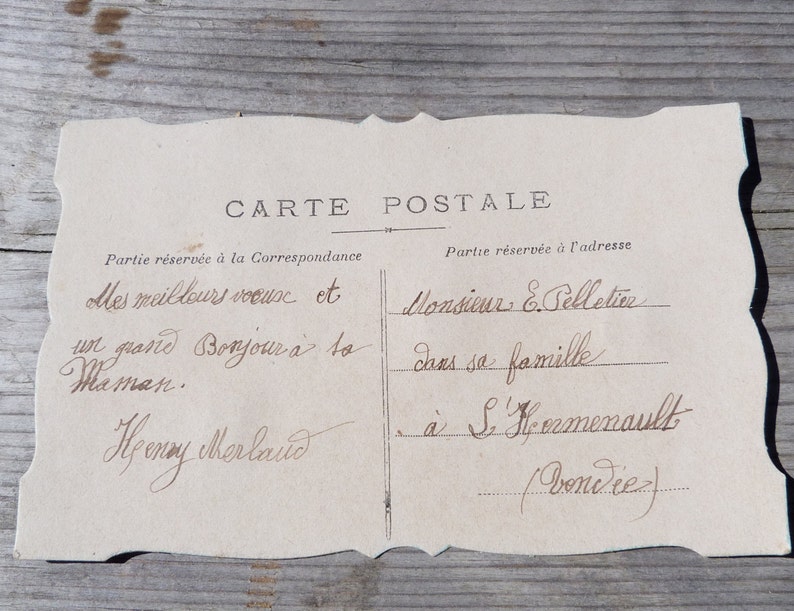 CARTE POSTALE
Partie réservée à la Correspondance
Mes meilleurs voeux et
un grand Bonjour à ta
Maman.
Henry Merlaud
Partie réservée à l'adresse
Monsieur E. Pelletier
dans sa famille
à L'Hermenault
(Vendée)